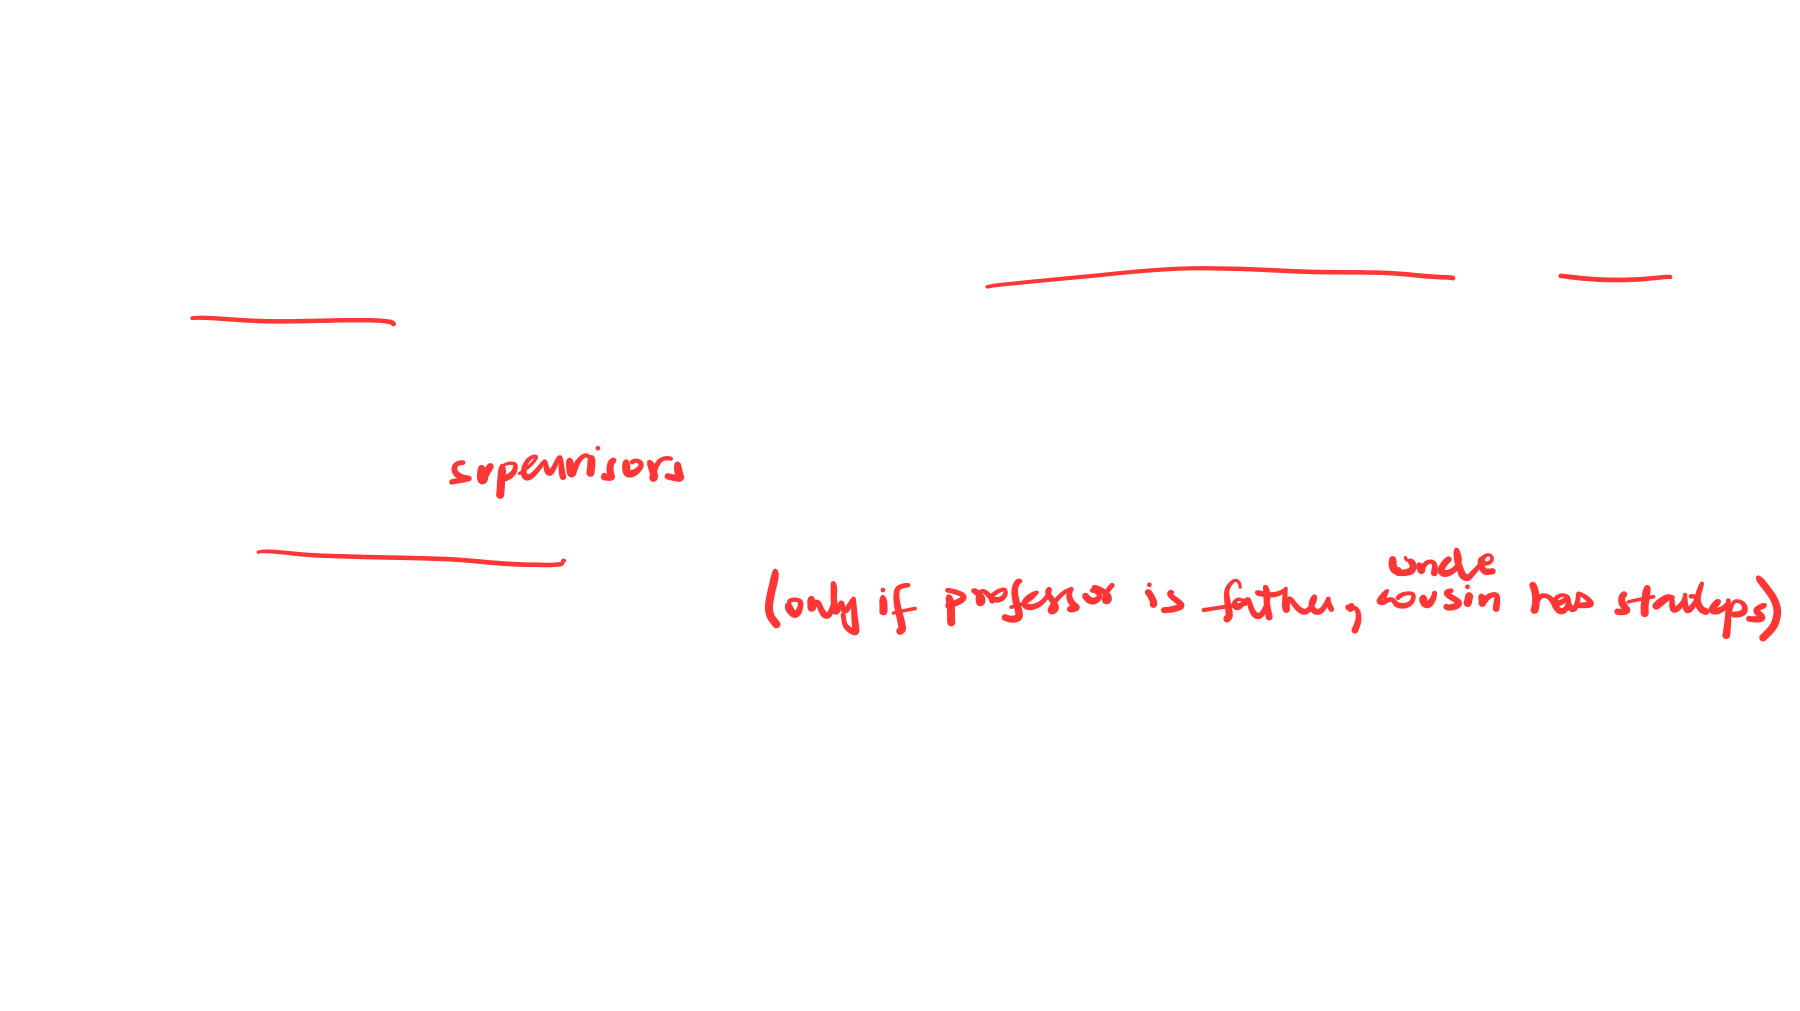 supervisors
uncle
(only if professor is father, cousin has startups)